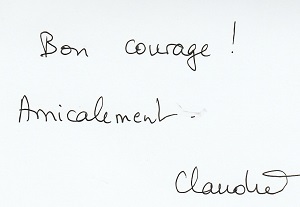 Bon courage !
Amicalement.
Claudie